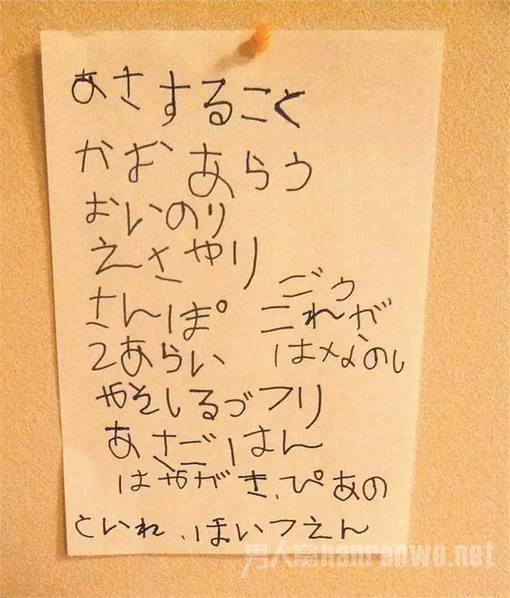 あさすること
かお あらう
おいのり
えさやり
さんぽ
2あらい
やそしるづフリ
あさごはん
はやがき、ぴあの
といれ、ほいつえん
ごう
これが
はなのし
男人窝nanrenwo.net